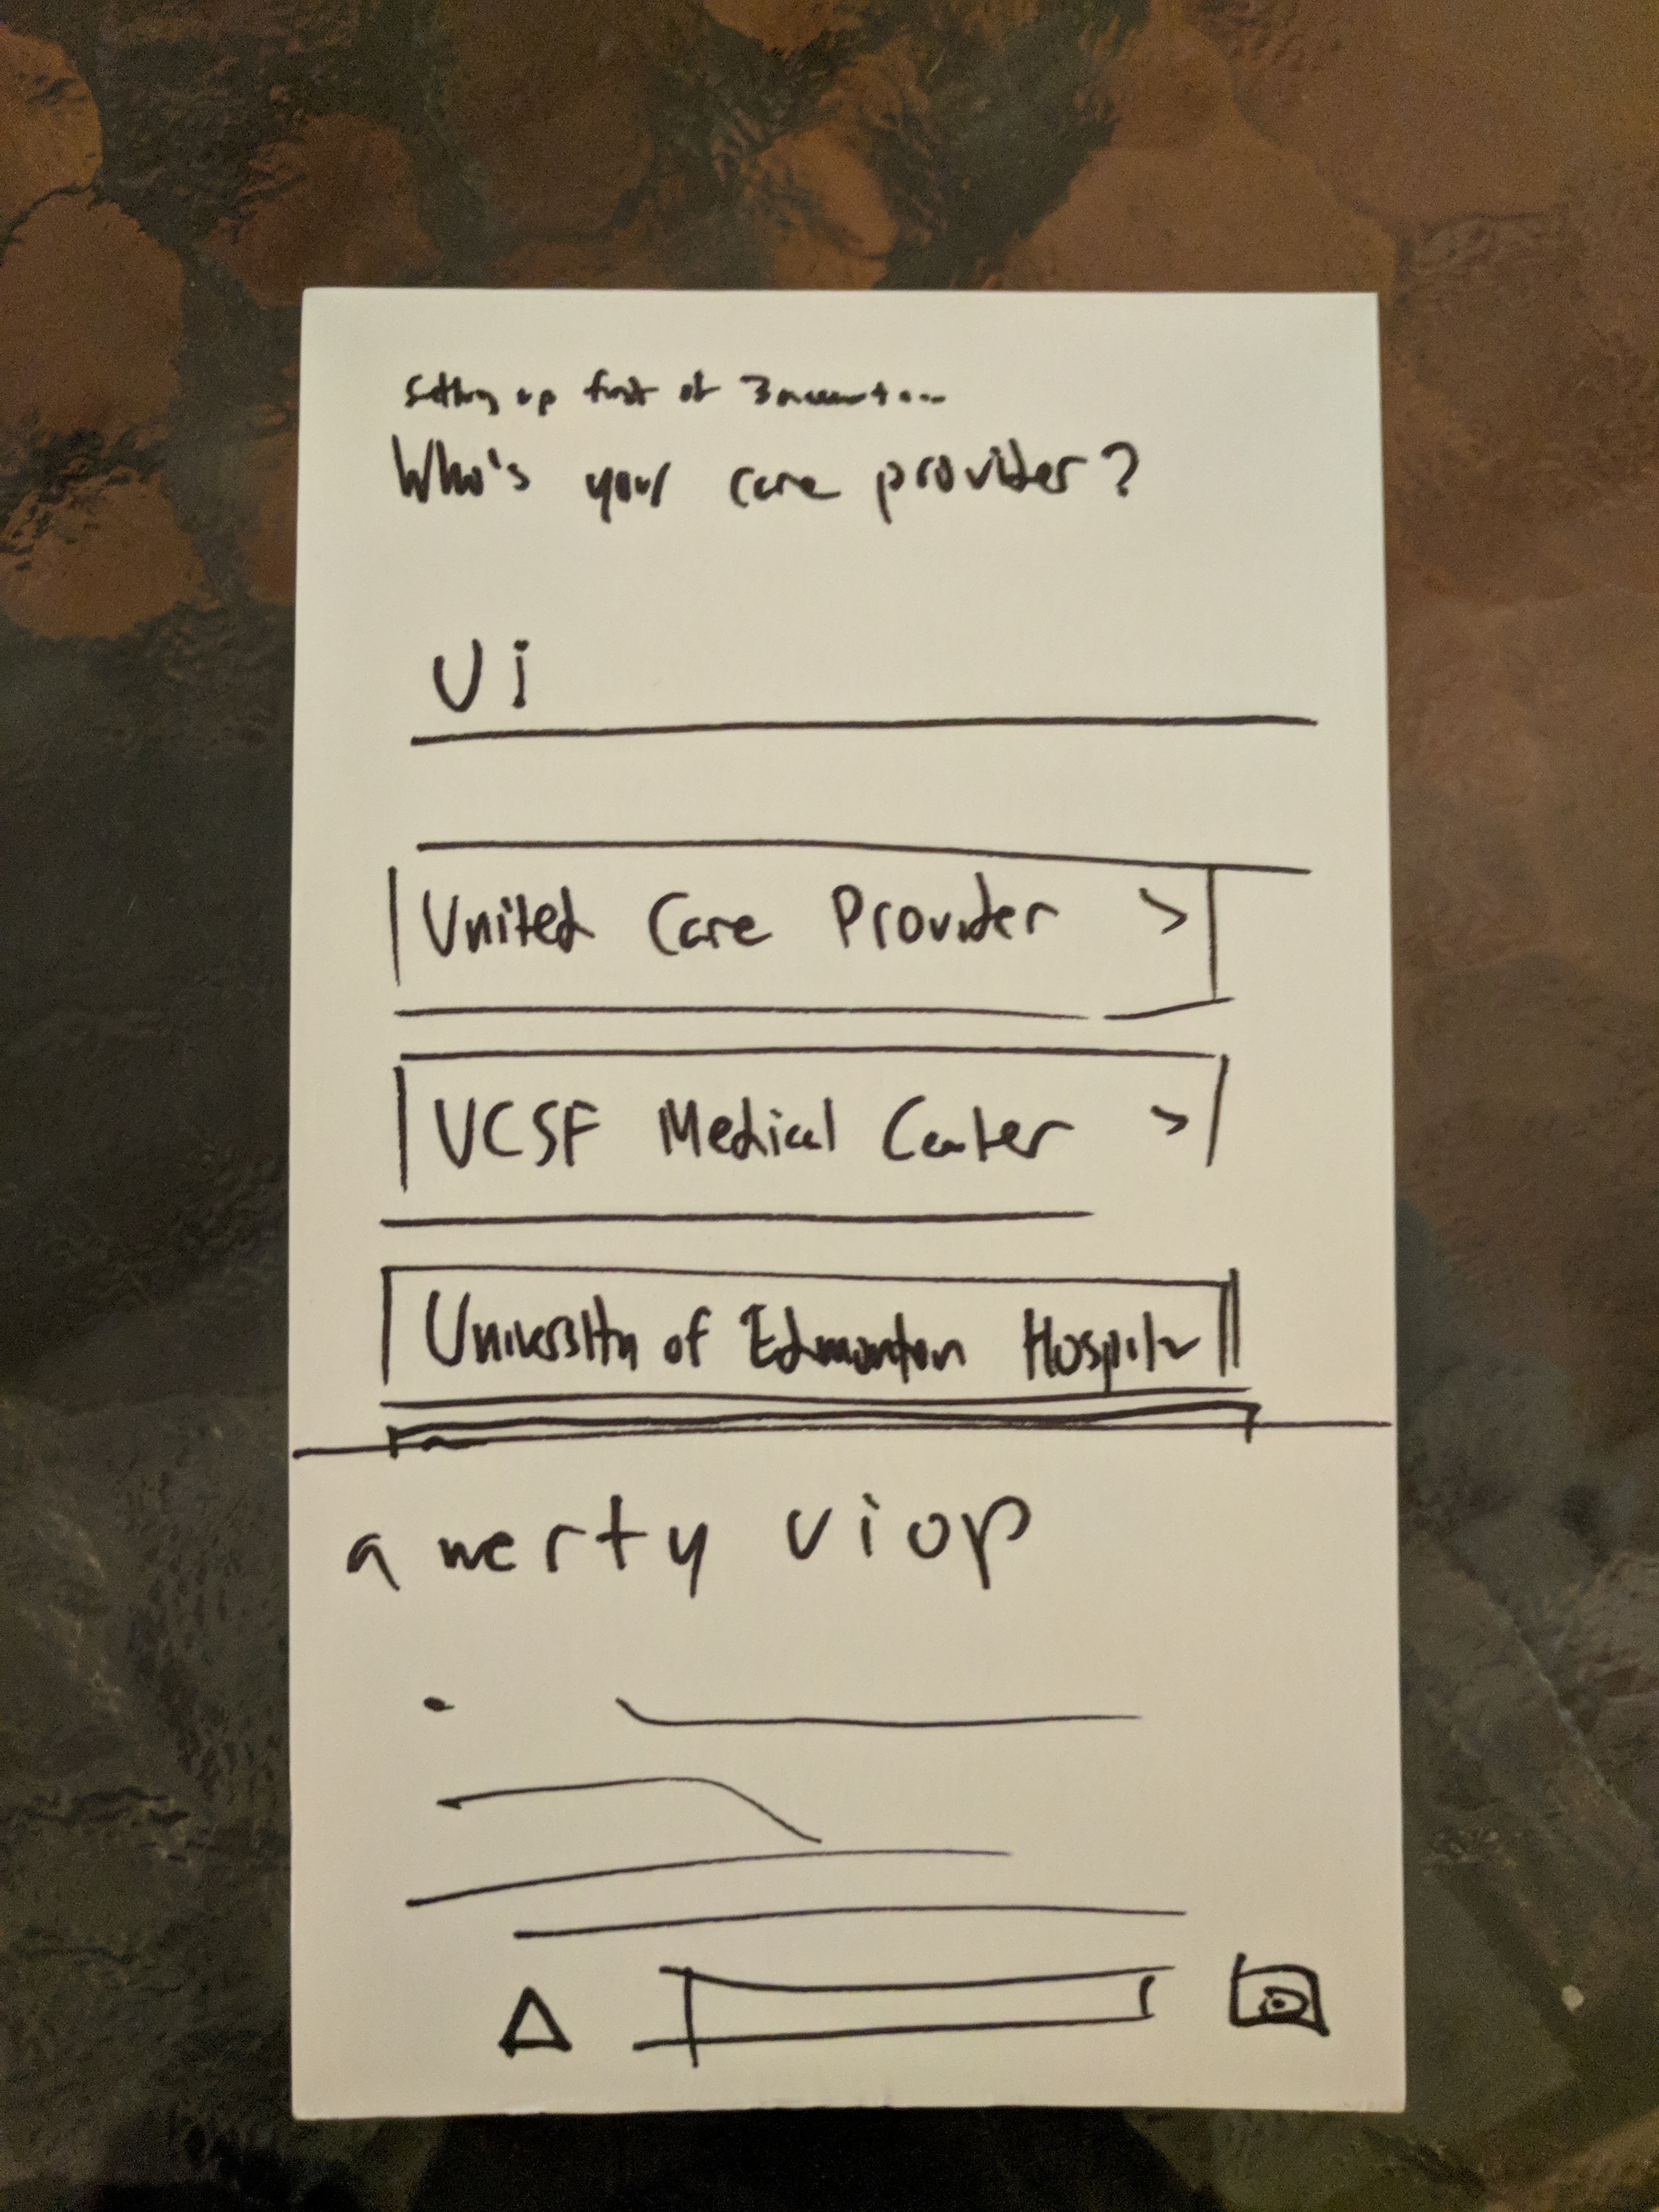 Setting up first of 3 account...
Who's your care provider?
Ui
United Care Provider >
UCSF Medical Center >
University of Edmonton Hospital
qwerty uiop